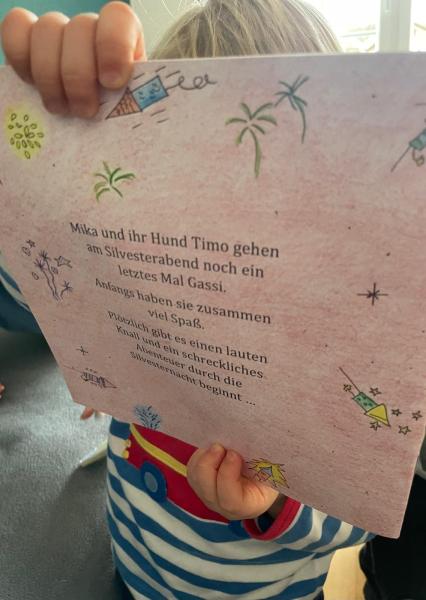 Mika und ihr Hund Timo gehen
am Silvesterabend noch ein
letztes Mal Gassi.
Anfangs haben sie zusammen
viel Spaß.
Plötzlich gibt es einen lauten
Knall und ein schreckliches
Abenteuer durch die
Silvesternacht beginnt ...